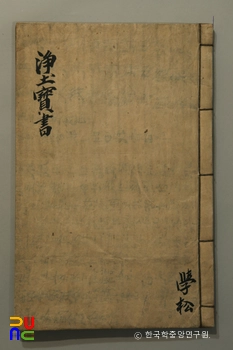 淨土寶書
學松
ⓒ 한국학중앙연구원